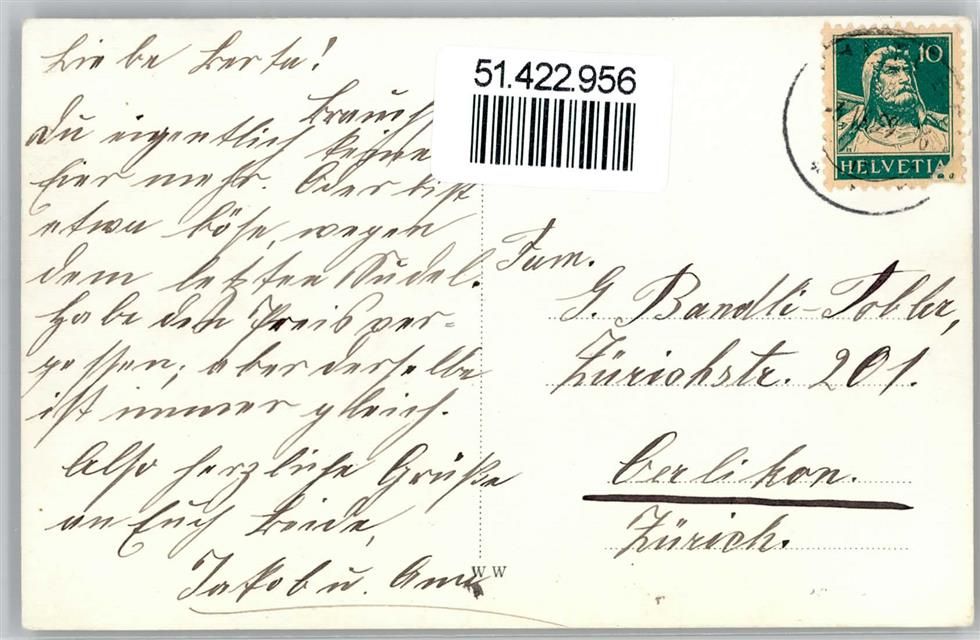 Liebe Berta!
Brauchst
Du eigentlich keine
Eier mehr. Oder bist
etwa böse, wegen
dem letzten Sudel.
Habe den Preis ver-
gessen; aber derselbe
ist immer gleich.
Also herzliche Grüße
an Euch beide,
Jakob u.
51.422.956
10
HELVETIA
Fam.
G. Bandli-Tobler,
Zürichstr. 201.
Oerlikon.
Zürich.
WW